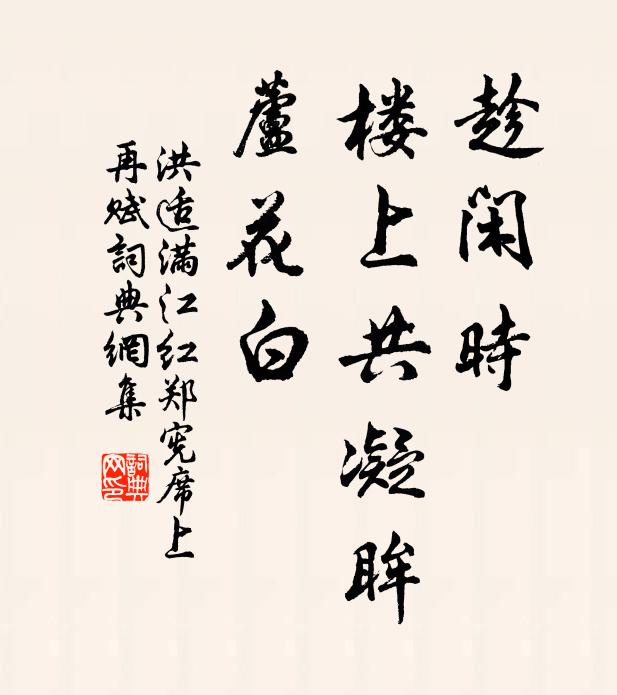 趁闲時
楼上共凝眸
蘆花白
洪适满江红郑宪席上
再赋詞典網集
詞典网印